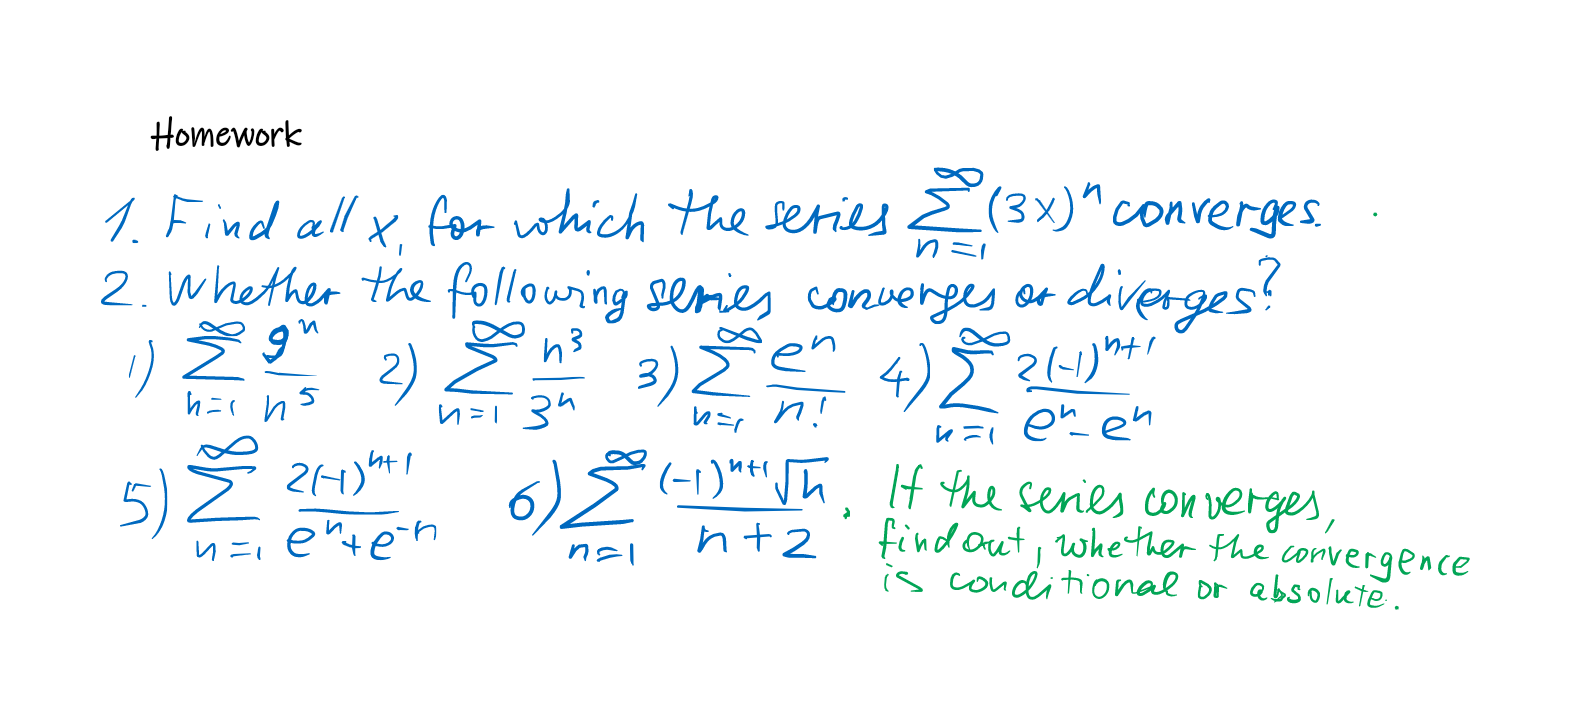 Homework
1. Find all x, for which the series ∑_{n=1}^{∞} (3x)^n converges.
2. Whether the following series converges or diverges?
1) ∑_{n=1}^{∞} 9^n/n^5 2) ∑_{n=1}^{∞} n^3/3^n 3) ∑_{n=1}^{∞} e^n/n! 4) ∑_{n=1}^{∞} 2(-1)^{n+1}/(e^n - e^n)
5) ∑_{n=1}^{∞} 2(-1)^{n+1}/(e^n + e^{-n}) 6) ∑_{n=1}^{∞} (-1)^{n+1}√n/(n+2). If the series converges,
find out, whether the convergence
is conditional or absolute.